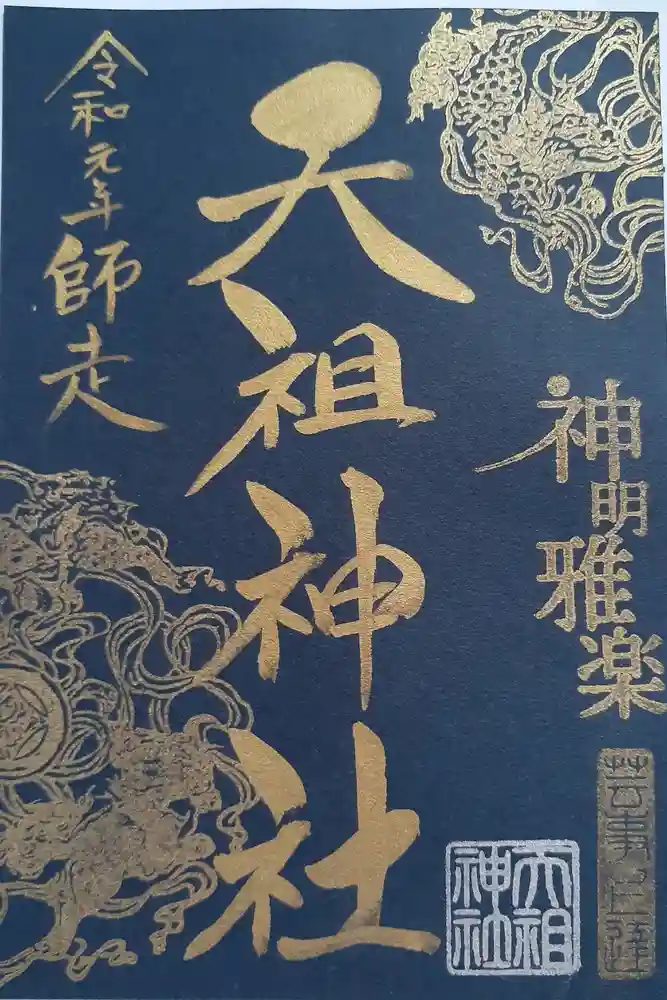 神明雅楽
芸事上達
天祖神社
天祖神社
令和元年師走